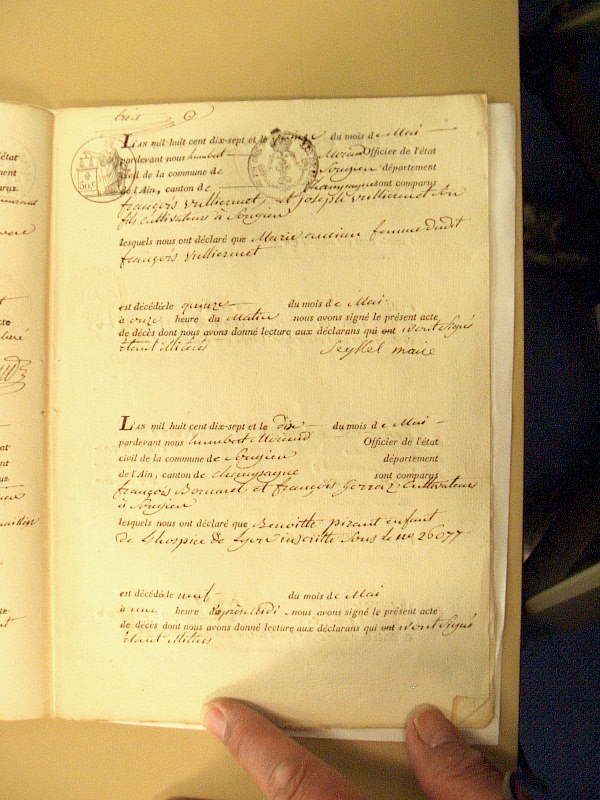 trois
L'AN mil huit cent dix-sept et le quinze du mois de Mai
pardevant nous humbert Morand Officier de l'état
civil de la commune de Songieu département
de l'Ain, canton de Champagne sont comparus
françois Vulliermet, et joseph Vulliermet Son
fils Cultivateurs à Songieu
lesquels nous ont déclaré que Marie ancian femme dudit
françois Vulliermet
est décédé le quinze du mois de Mai
à onze heure du Matin nous avons signé le présent acte
de décès dont nous avons donné lecture aux déclarans qui ont n'ont Signés
étant illiterés
maire
L'AN mil huit cent dix-sept et le dix du mois de Mai
pardevant nous humbert Morand Officier de l'état
civil de la commune de Songieu département
de l'Ain, canton de champagne sont comparus
françois Bornarel, et françois Cultivateurs
à Songieu
lesquels nous ont déclaré que Benoitte enfant
de L'hospice de Lyon inscritte Sous le no 26077
est décédé le neuf du mois de Mai
à une heure d'après Midi nous avons signé le présent acte
de décès dont nous avons donné lecture aux déclarans qui ont n'ont Signés
étant illiterés